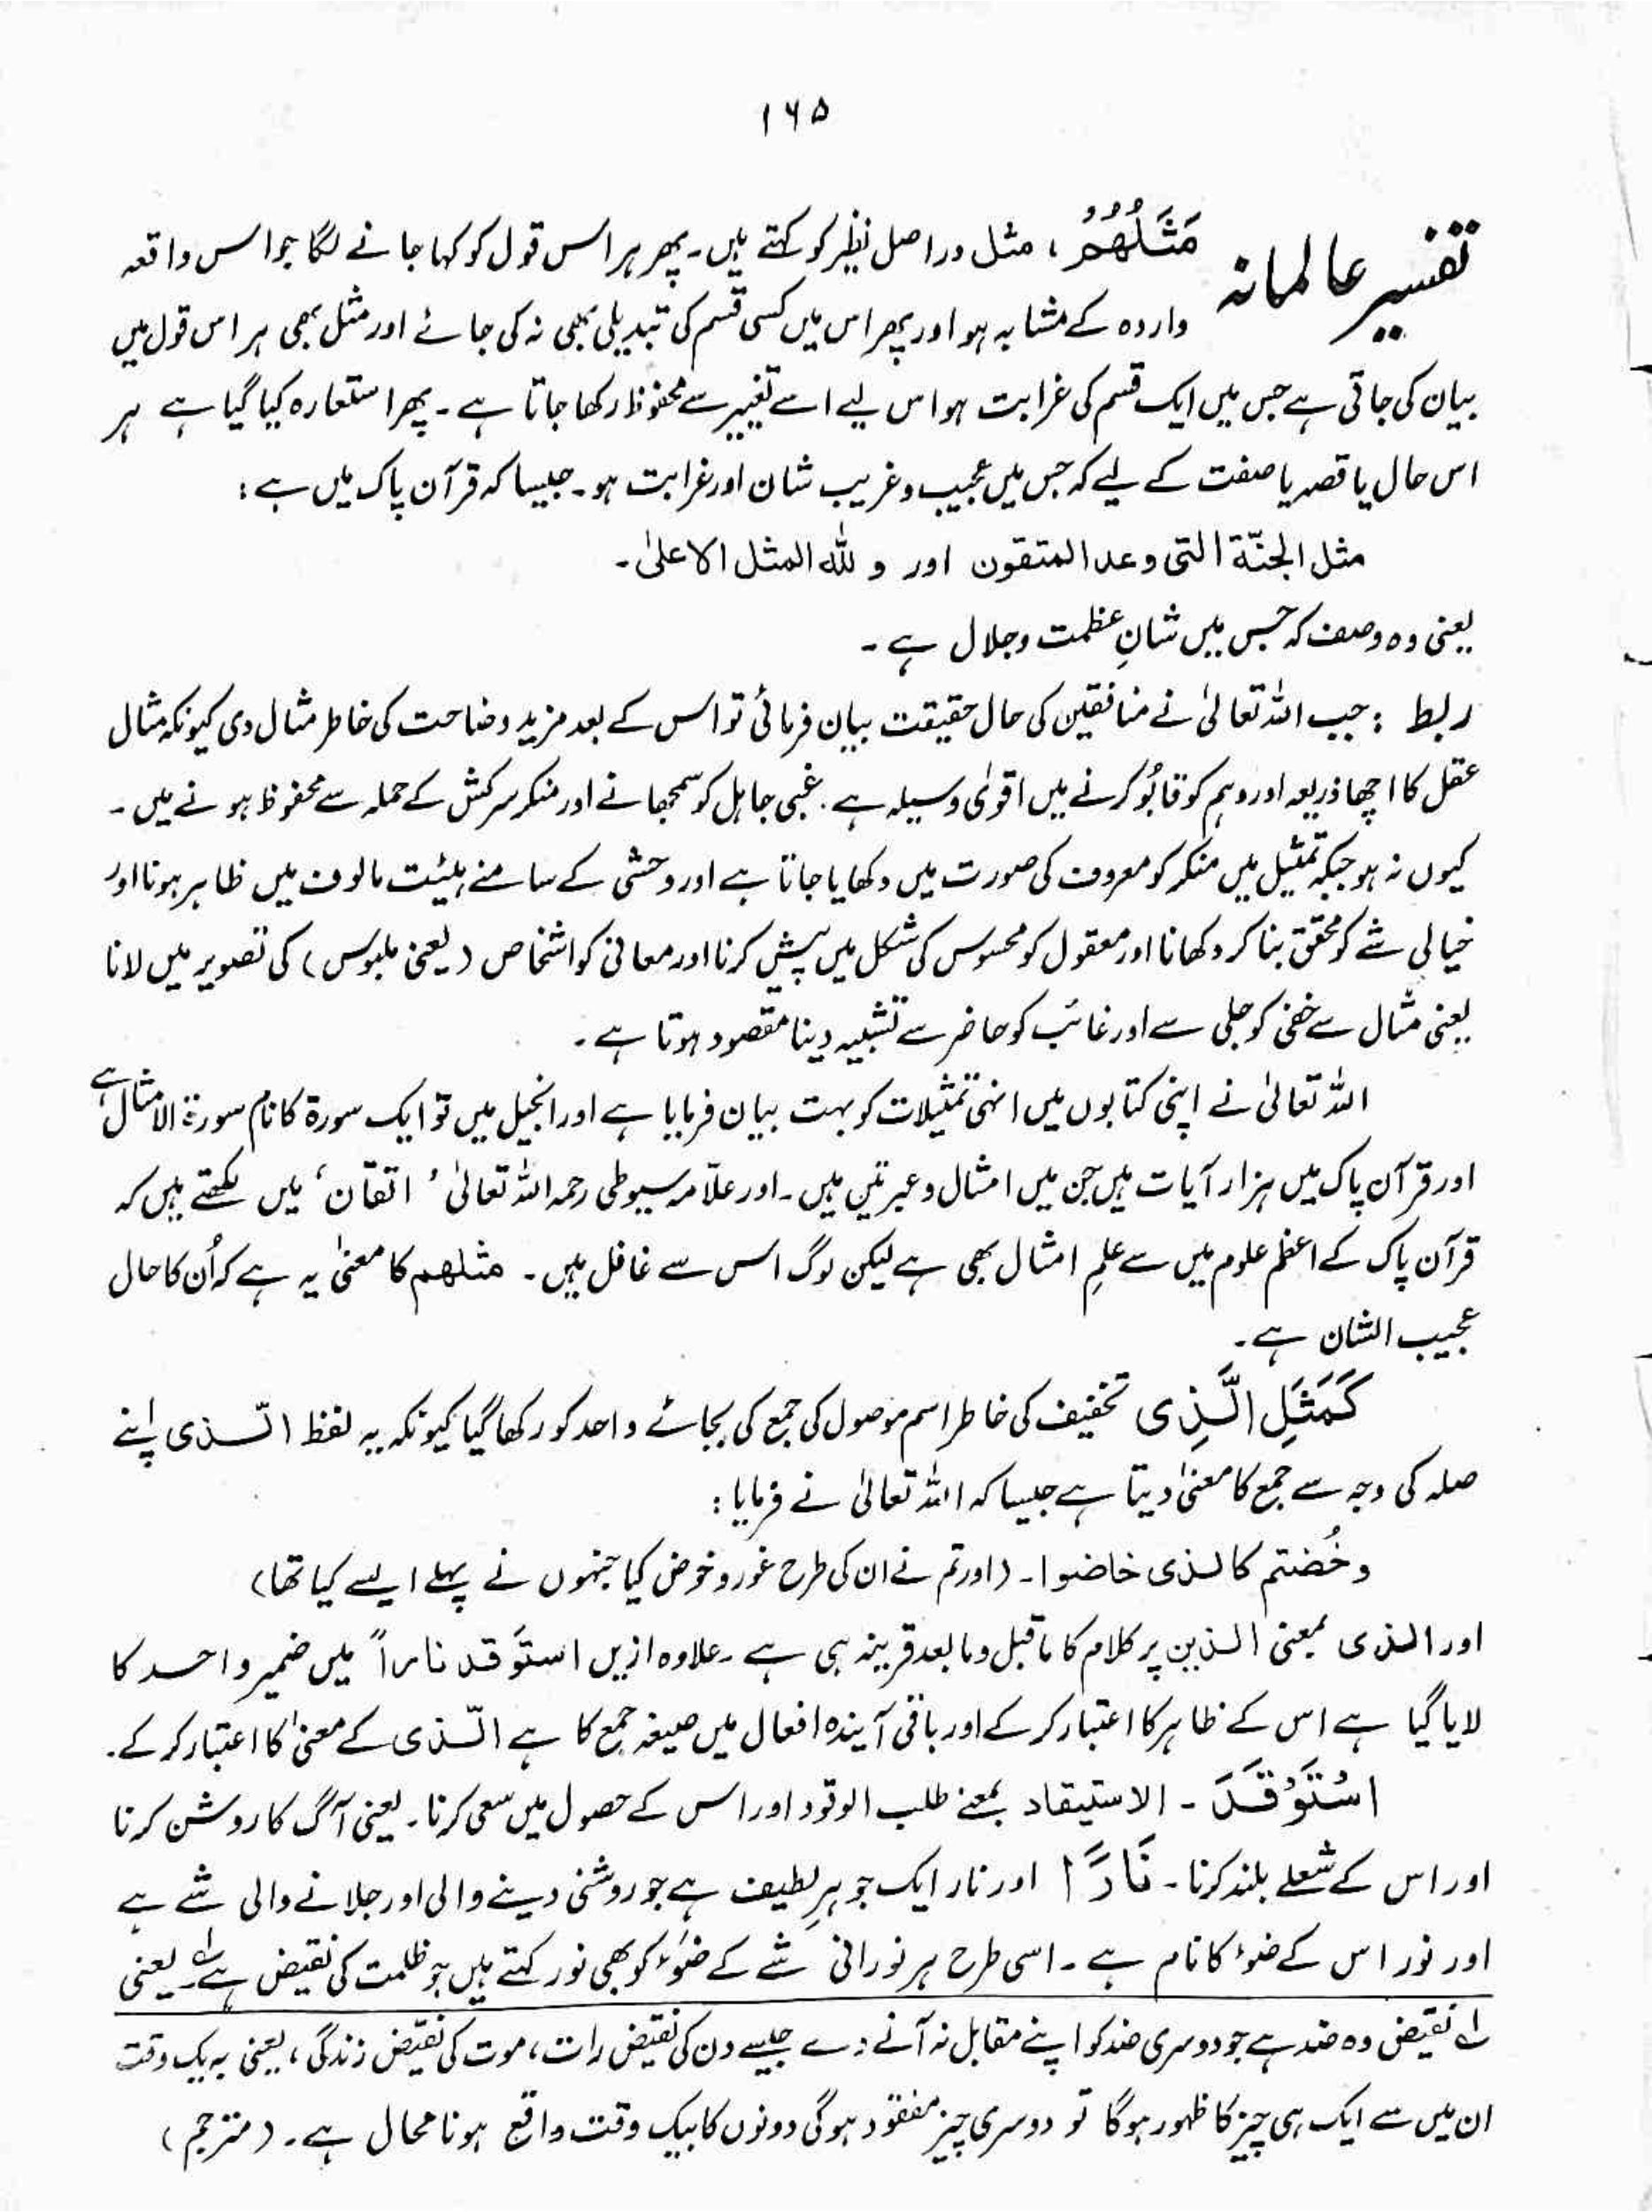 ۱۶۵
تفسیر عالمانہ
مَثَلُهُمْ ، مثل دراصل نظیر کو کہتے ہیں۔ پھر ہر اس قول کو کہا جانے لگا جو اس واقعہ
واردہ کے مشابہ ہو اور پھر اس میں کسی قسم کی تبدیلی بھی نہ کی جائے اور مثل بھی ہر اس قول میں
بیان کی جاتی ہے جس میں ایک قسم کی غرابت ہو اس لیے اسے تغییر سے محفوظ رکھا جاتا ہے۔ پھر استعارہ کیا گیا ہے ہر
اس حال یا قصہ یا صفت کے لیے کہ جس میں عجیب و غریب شان اور غرابت ہو۔ جیسا کہ قرآن پاک میں ہے :
مثل الجنّة التی وعد المتقون اور و للّٰه المثل الاعلیٰ۔
یعنی وہ وصف کہ جس میں شانِ عظمت و جلال ہے۔
ربط : جب اللہ تعالیٰ نے منافقین کی حال حقیقت بیان فرمائی تو اس کے بعد مزید وضاحت کی خاطر مثال دی کیونکہ مثال
عقل کا اچھا ذریعہ اور وہم کو قابُو کرنے میں اقویٰ وسیلہ ہے۔ غبی جاہل کو سمجھانے اور منکر سرکش کے حملہ سے محفوظ ہونے میں۔
کیوں نہ ہو جبکہ تمثیل میں منکر کو معروف کی صورت میں دکھایا جاتا ہے اور وحشی کے سامنے ہیئت مالوف میں ظاہر ہونا اور
خیالی شے کو محقق بنا کر دکھانا اور معقول کو محسوس کی شکل میں پیش کرنا اور معانی کو اشخاص (یعنی ملبوس) کی تصویر میں لانا
یعنی مثال سے خفی کو جلی سے اور غائب کو حاضر سے تشبیہ دینا مقصود ہوتا ہے۔
اللہ تعالیٰ نے اپنی کتابوں میں انہی تمثیلات کو بہت بیان فرمایا ہے اور انجیل میں تو ایک سورۃ کا نام سورۃ الامثال ہے
اور قرآن پاک میں ہزار آیات ہیں جن میں امثال و عبرتیں ہیں۔ اور علّامہ سیوطی رحمہ اللہ تعالیٰ ' اتقان ' میں لکھتے ہیں کہ
قرآن پاک کے اعظم علوم میں سے علمِ امثال بھی ہے لیکن لوگ اس سے غافل ہیں۔ مثلهم کا معنیٰ یہ ہے کہ اُن کا حال
عجیب الشان ہے۔
كَمَثَلِ الَّذِی تخفیف کی خاطر اسم موصول کی جمع کی بجائے واحد کو رکھا گیا کیونکہ یہ لفظ الّذی اپنے
صلہ کی وجہ سے جمع کا معنیٰ دیتا ہے جیسا کہ اللہ تعالیٰ نے فرمایا :
وخُضتم کالذی خاضوا۔ (اور تم نے ان کی طرح غور و خوض کیا جنہوں نے پہلے ایسے کیا تھا)
اور الذی بمعنی الذین پر کلام کا ماقبل و مابعد قرینہ ہی ہے۔ علاوہ ازیں استوقد ناراً میں ضمیر واحد کا
لایا گیا ہے اس کے ظاہر کا اعتبار کر کے اور باقی آیندہ افعال میں صیغہ جمع کا ہے الّذی کے معنیٰ کا اعتبار کر کے۔
اسْتَوْقَدَ ۔ الاستیقاد بمعنے طلب الوقود اور اس کے حصول میں سعی کرنا۔ یعنی آگ کا روشن کرنا
اور اس کے شعلے بلند کرنا۔ نَارًا اور نار ایک جوہرِ لطیف ہے جو روشنی دینے والی اور جلانے والی شے ہے
اور نور اس کے ضوء کا نام ہے۔ اسی طرح ہر نورانی شے کے ضَوء کو بھی نور کہتے ہیں جو ظلمت کی نقیض ہے لہ یعنی
لہ نقیض وہ ضد ہے جو دوسری ضد کو اپنے مقابل نہ آنے دے جیسے دن کی نقیض رات، موت کی نقیض زندگی، یعنی بہ یک وقت
ان میں سے ایک ہی چیز کا ظہور ہوگا تو دوسری چیز مفقود ہوگی دونوں کا بیک وقت واقع ہونا محال ہے۔ (مترجم)